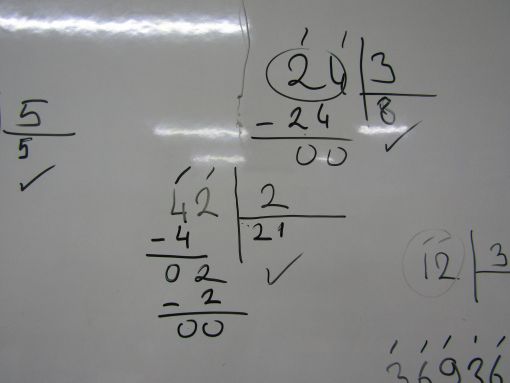 5
5
24 3
- 24 8
00
42 2
- 4 21
02
- 2
00
12 3
36936